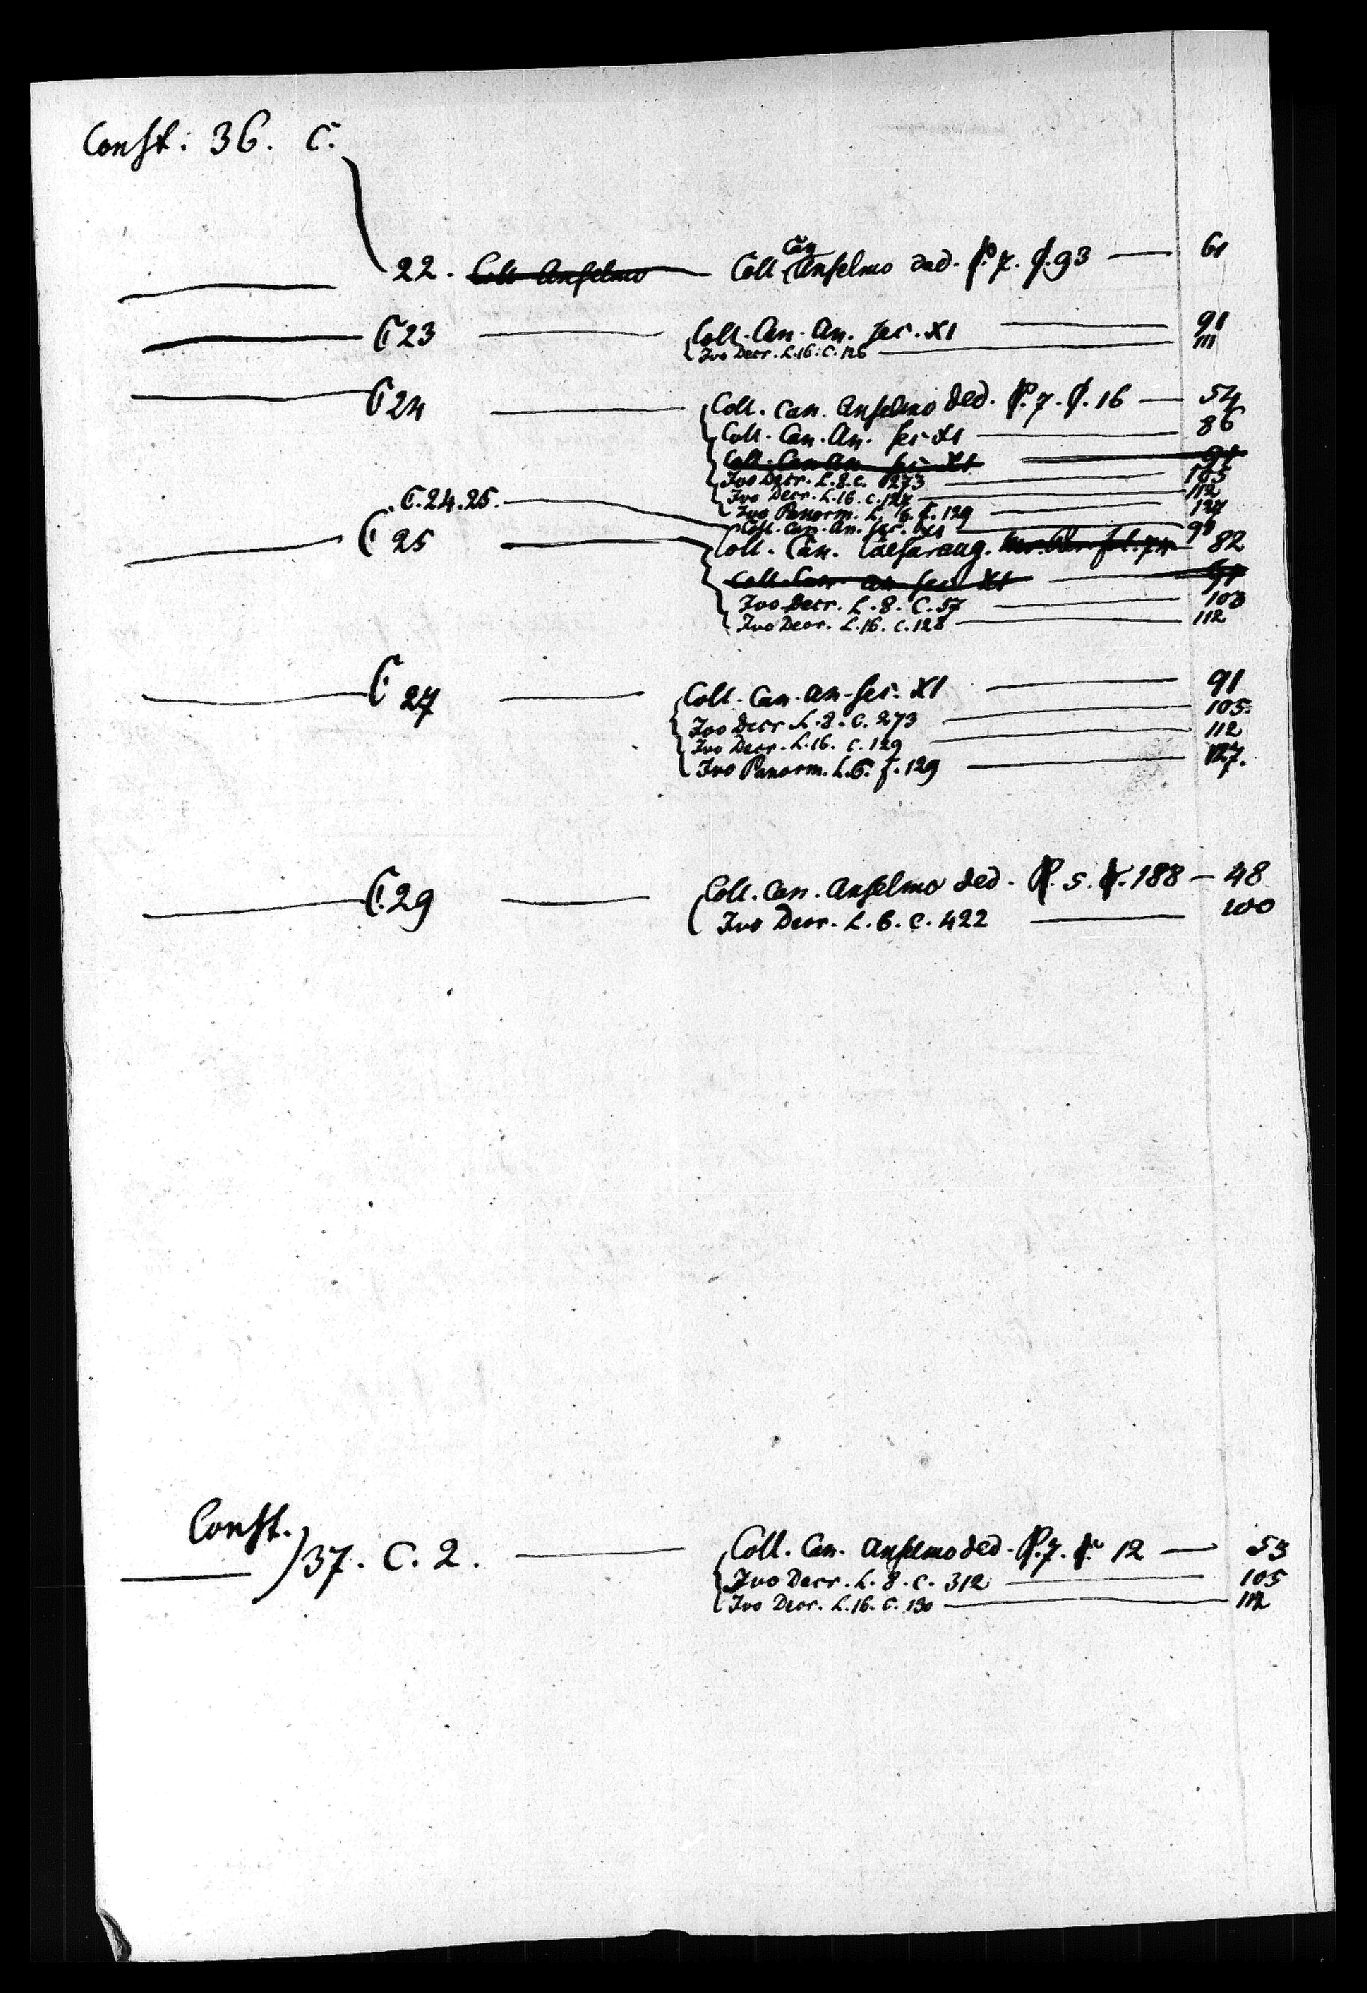 Const: 36. C.
22. Coll Anselmo Coll Can Anselmo ded. P. 7. C. 93 61
C 23 Coll. Can. An. sec. XI 91
Ivo Decr. L. 16. C. 126 111
C 24 Coll. Can. Anselmo ded. P. 7. C. 16 54
Coll. Can. An. sec XI 86
Coll. Can An sec XI 91
Ivo Decr. L. 8. C. 273 105
Ivo Decr. L. 16. C. 127 112
Ivo Panorm. L. 6. C. 129 127
C. 24. 25. Coll. Can. An. sec. XI 91
C 25 Coll. Can. Caesaraug. fol. 74 82
Coll. Can. An sec XI 91
Ivo Decr. L. 8. C. 57 103
Ivo Decr. L. 16. C. 128 112
C 27 Coll. Can. An. sec. XI 91
Ivo Decr. L. 8. C. 273 105.
Ivo Decr. L. 16. C. 129 112
Ivo Panorm. L. 6. f. 129 127.
C. 29 Coll. Can. Anselmo ded. P. 5. C. 188 48
Ivo Decr. L. 6. C. 422 100
Const. 37. C. 2. Coll. Can. Anselmo ded. P. 7. C. 12 53
Ivo Decr. L. 8. C. 312 105
Ivo Decr. L. 16. C. 130 112